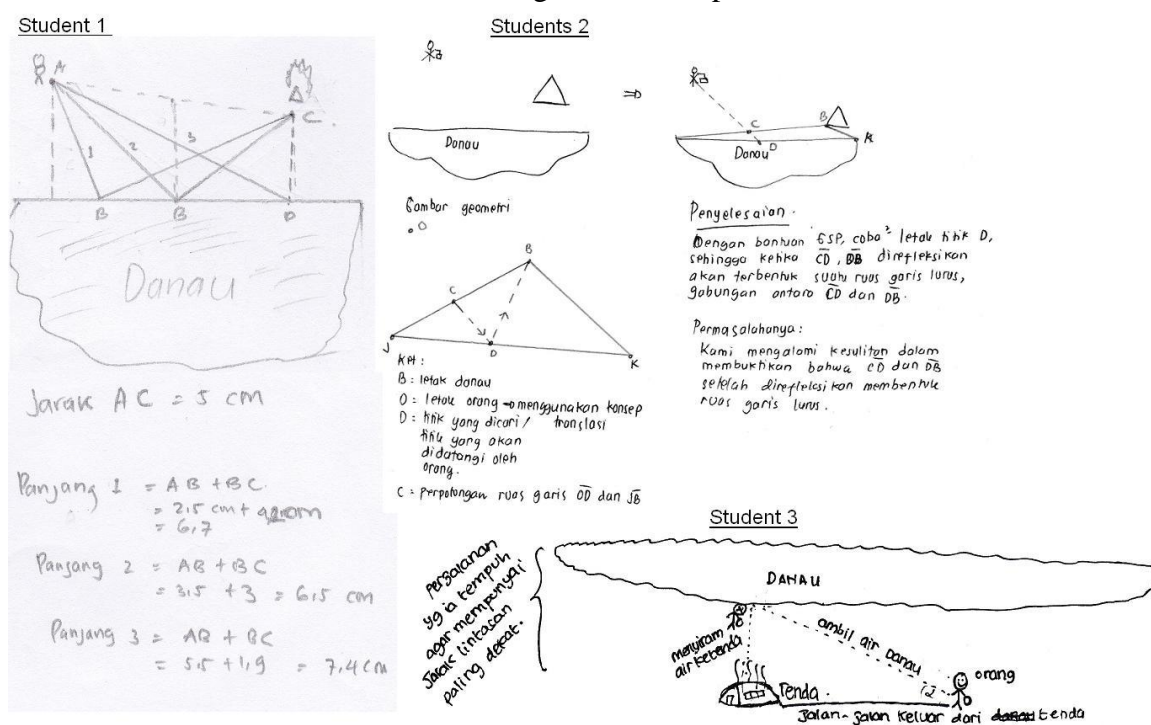 Student 1
A
C
1
2
3
B
B
D
Danau
Jarak AC = 5 cm
Panjang 1 = AB + BC
= 2,5 cm +
= 6,7
Panjang 2 = AB + BC
= 3,5 + 3 = 6,5 cm
Panjang 3 = AB + BC
= 5,5 + 1,9 = 7,4 cm
Students 2
Danau
⇒
C
B
K
D
Danau
Gambar geometri
O
B
C
J
D
K
Ket :
B : letak danau
O : letak orang → menggunakan konsep
D : titik yang dicari / translasi
titik yang akan
didatangi oleh
orang.
C = Perpotongan ruas garis OD dan JB
Penyelesaian.
Dengan bantuan GSP, coba² letak titik D,
sehingga ketika CD, DB direfleksikan
akan terbentuk suatu ruas garis lurus,
gabungan antara CD dan DB.
Permasalahanya :
Kami mengalami kesulitan dalam
membuktikan bahwa CD dan DB
setelah direfleksikan membentuk
ruas garis lurus.
Student 3
Perjalanan
yg ia tempuh
agar mempunyai
Jarak lintasan
paling dekat.
DANAU
menyiram
air ketenda
ambil air Danau
orang
Tenda.
Jalan-jalan keluar dari tenda